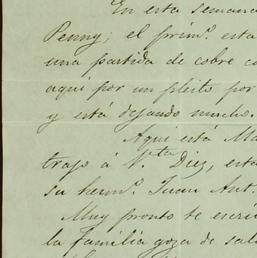 En esta semana
Penny; el prim.º esta
una partida de cobre co
aqui por un pleito por
y está dejando mucho.
Aqui está Ma
trajo á S.ta Diez, esta
su herm.º Juan Ant.
Muy pronto te escri
la familia goza de sal